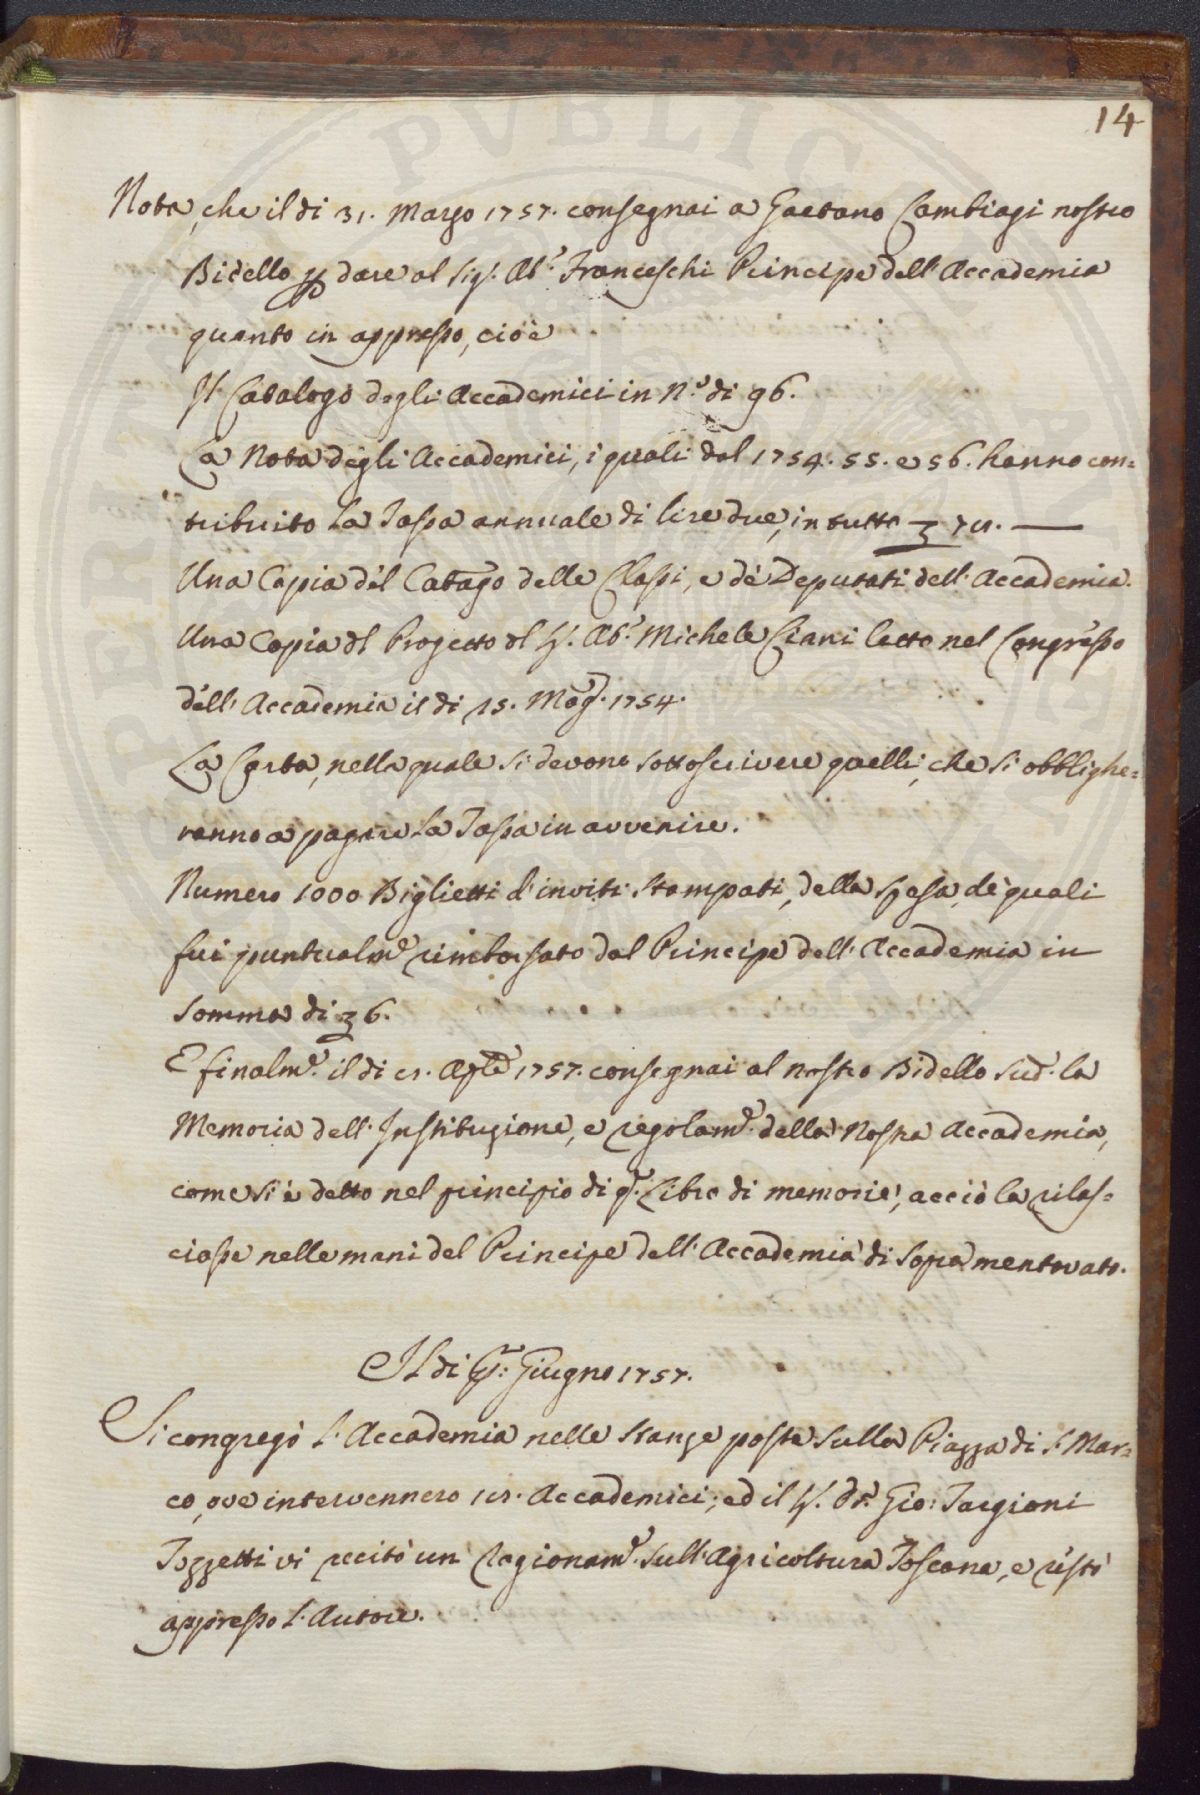 14
Nota, che il di 31. Marzo 1757. consegnai a Gaetano Cambiagi nostro
Bidello p dare al Sig.r Ab.e Franceschi Principe dell'Accademia
quanto in appresso, cioè
Il Catalogo degli Accademici in N.o di 96.
La Nota degli Accademici, i quali dal 1754. 55. e 56. hanno con=
tribuito la Tassa annuale di lire due, in tutto
Una Copia del Catago delle Classi, e de' Deputati dell'Accademia.
Una Copia dl Progetto dl S. Ab.e Michele Ciani letto nel Congresso
dell'Accademia il di 15. Mag. 1754.
La Carta, nella quale si devono sottoscrivere quelli, che si obblighe=
ranno a pagare la Tassa in avvenire.
Numero 1000 Biglietti d'inviti stampati, della spesa de' quali
fui puntualm.e rimborsato dal Principe dell'Accademia in
somma di 6.
E finalm.e il di Aple 1757. consegnai al nostro Bidello Sud.o la
Memoria dell'Instituzione, e regolam.o della Nostra Accademia,
come si è detto nel principio di q.o Libro di memorie, acciò la rilas=
ciasse nelle mani del Principe dell'Accademia di sopra mentovato.
Il di Giugno 1757.
Si congregò l'Accademia nelle stanze poste sulla Piazza di S. Mar=
co, ove intervennero Accademici; ed il S. Dr. Gio: Targioni
Tozzetti vi recitò un Ragionam.o sull'Agricoltura Toscana, e restò
appresso l'Autore.